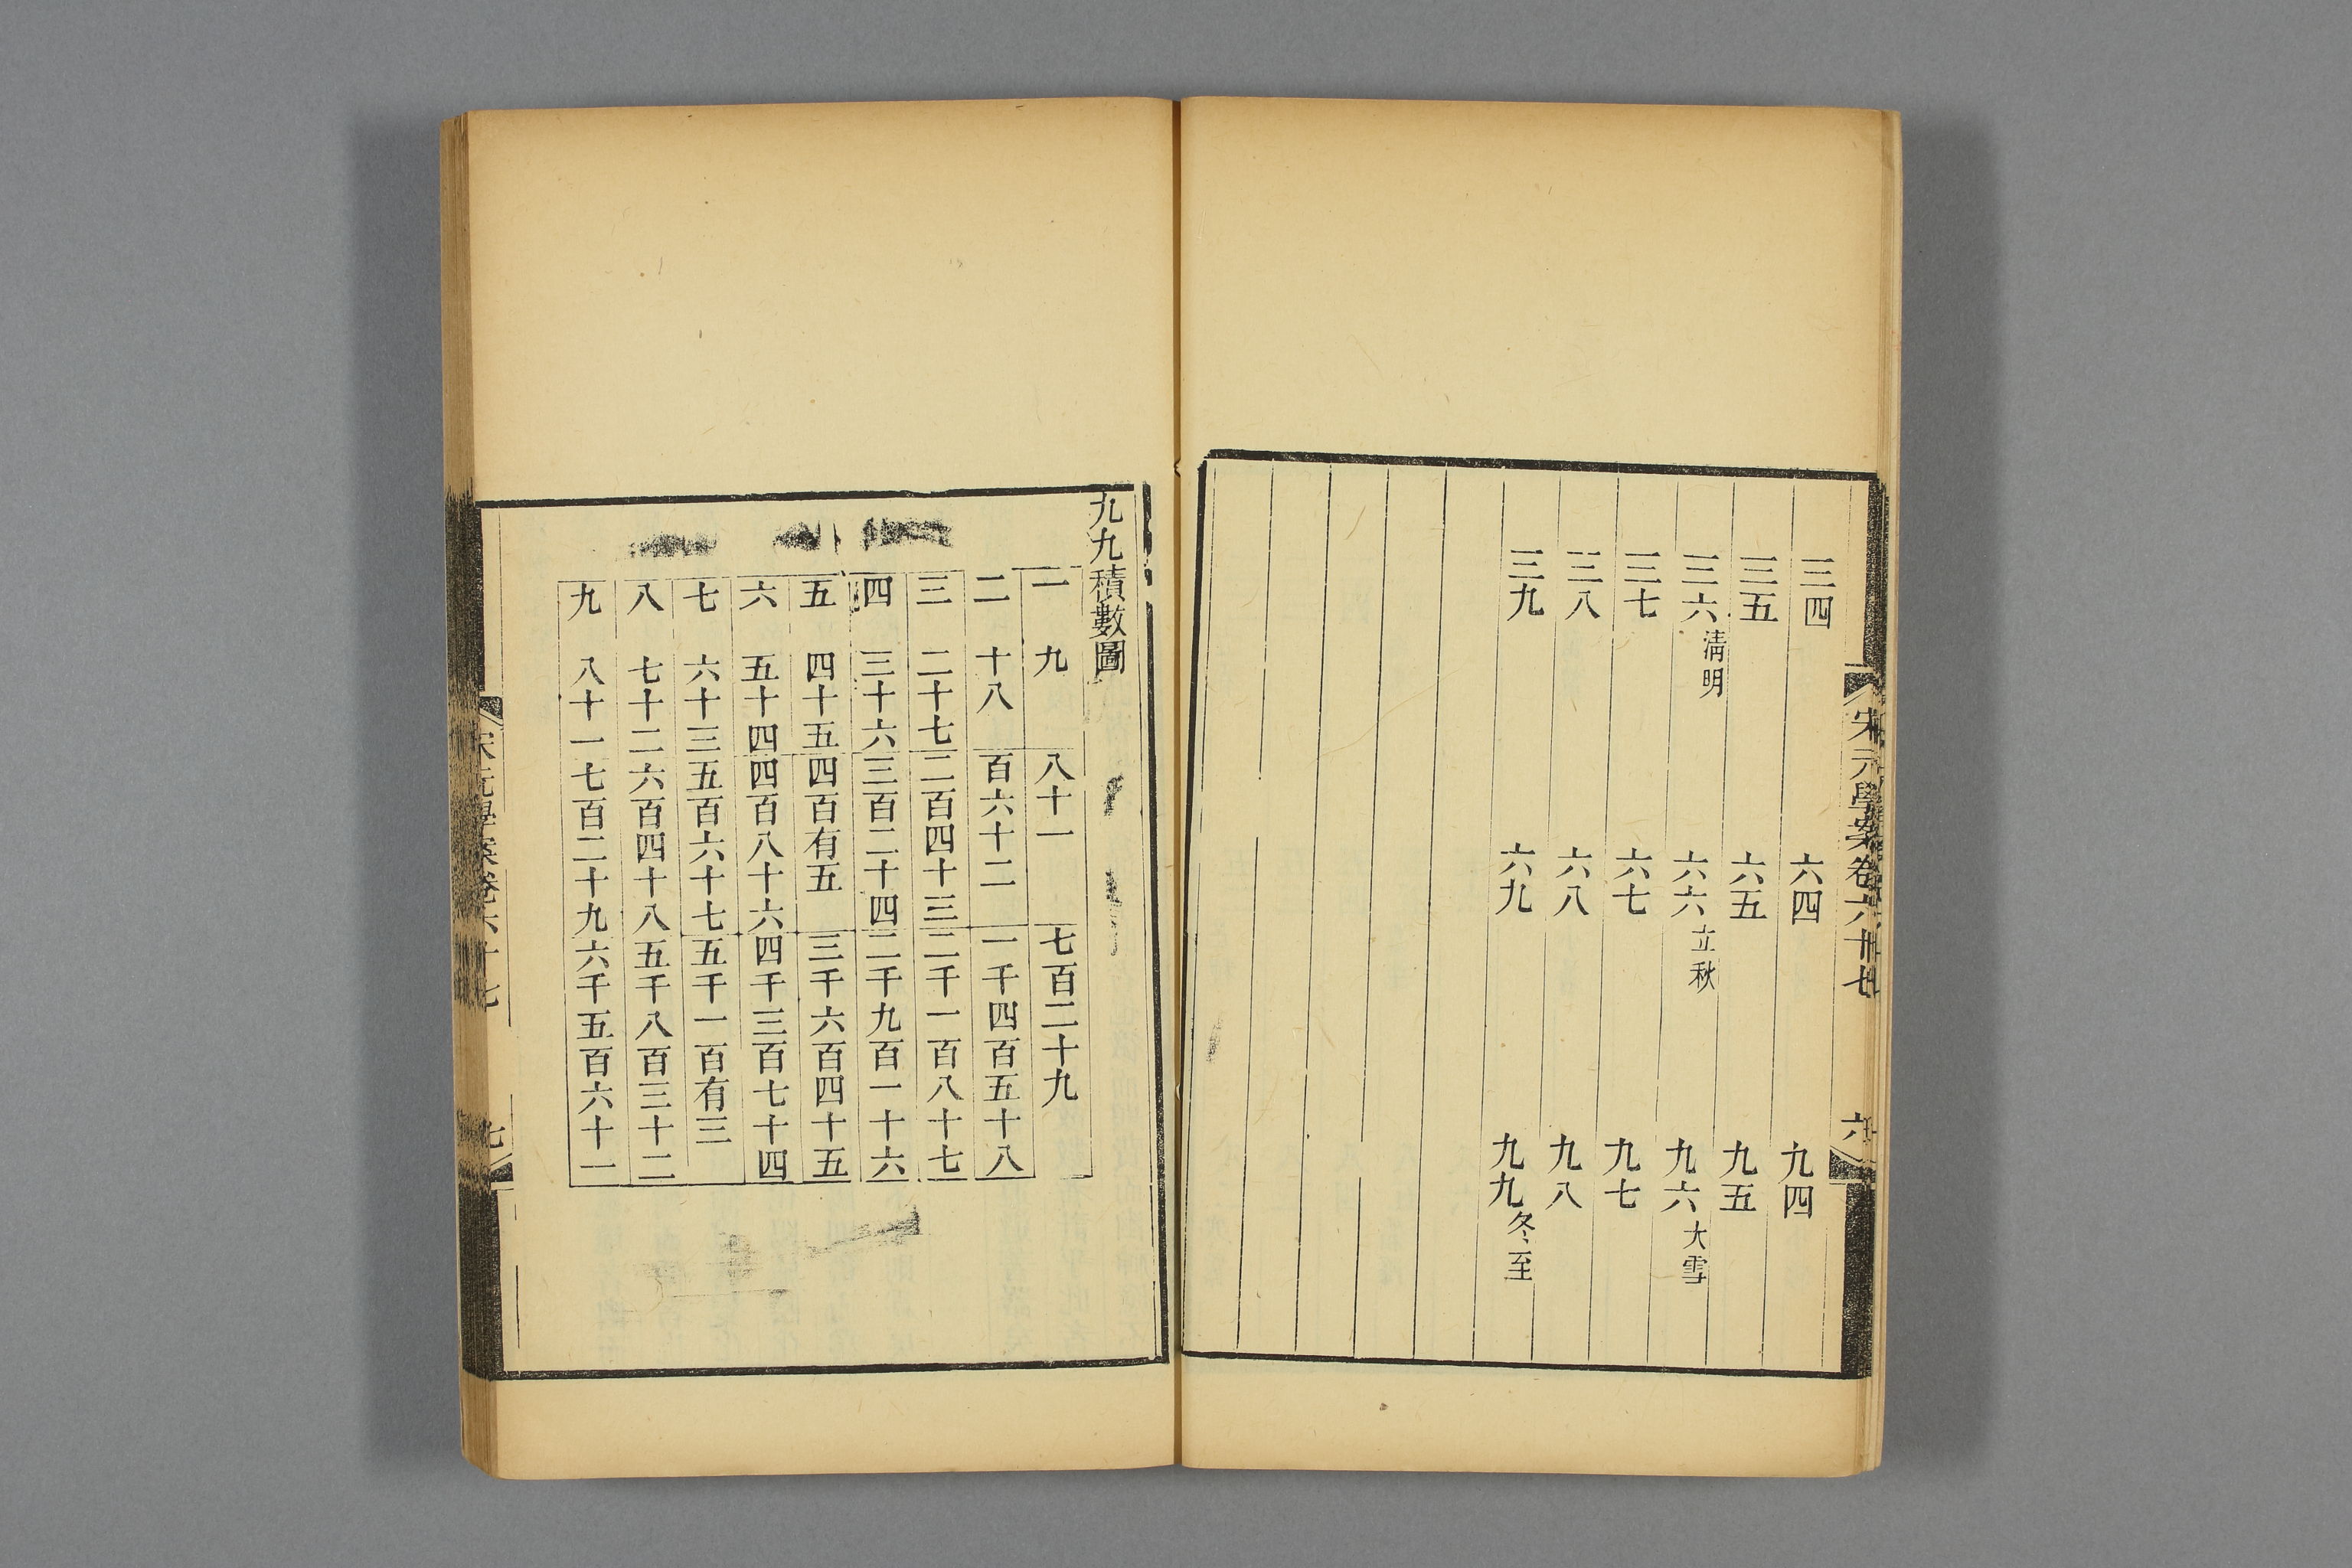 三四　六四　九四
三五　六五　九五
三六清明　六六立秋　九六大雪
三七　六七　九七
三八　六八　九八
三九　六九　九九冬至
宋元學案卷六十七　六
九九積數圖
一　九　八十一　七百二十九
二　十八　百六十二　一千四百五十八
三　二十七　二百四十三　二千一百八十七
四　三十六　三百二十四　二千九百一十六
五　四十五　四百有五　三千六百四十五
六　五十四　四百八十六　四千三百七十四
七　六十三　五百六十七　五千一百有三
八　七十二　六百四十八　五千八百三十二
九　八十一　七百二十九　六千五百六十一
宋元學案卷六十七　七